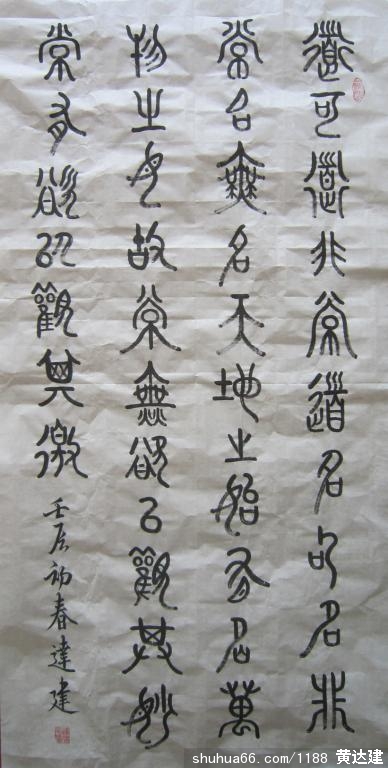 道可道非常道名可名非
常名無名天地之始有名萬
物之母故常無欲以觀其妙
常有欲以觀其徼
壬辰初春達建
shuhua66.com/1188 黄达建